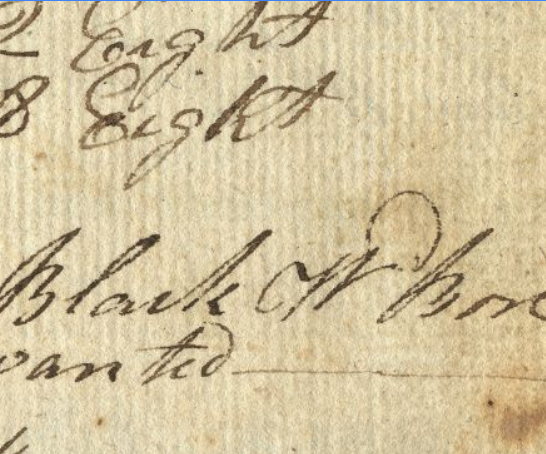 2 Eight
8 Eight
Black
wanted